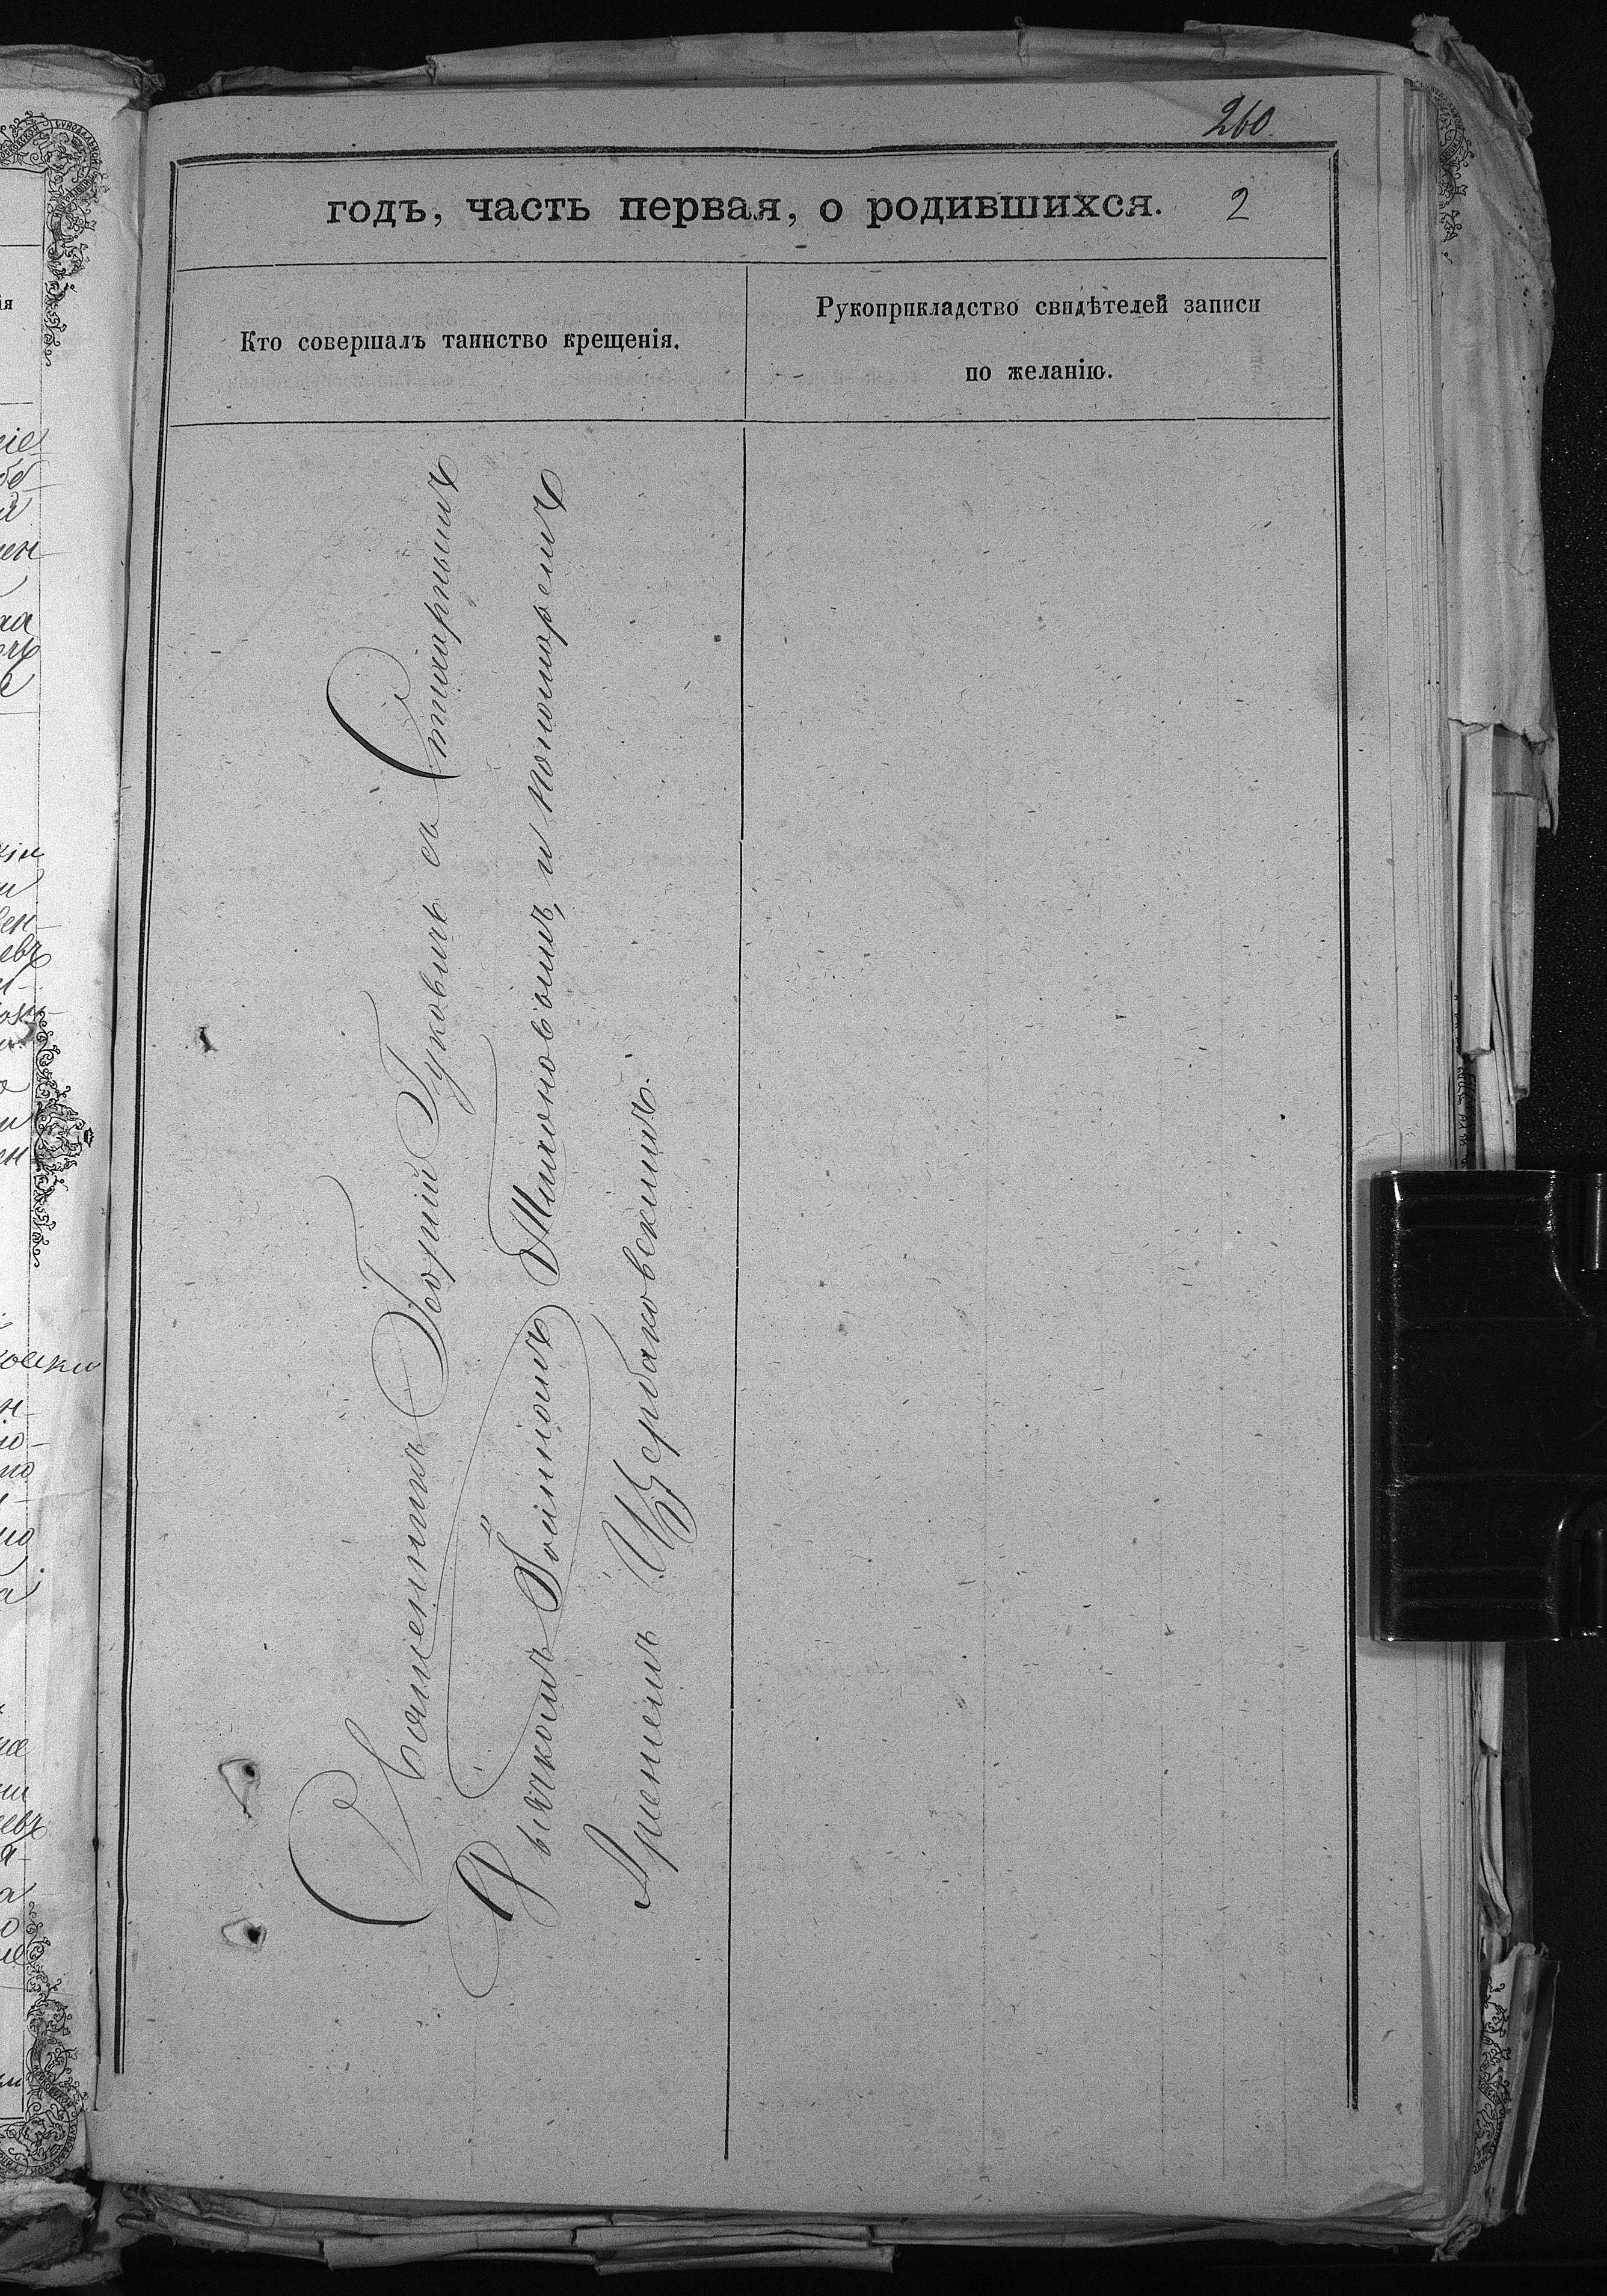 260.
годъ, часть первая, о родившихся. 2
Кто совершалъ таинство крещенія.
Рукоприкладство свидѣтелей записи
по желанію.
Священникъ Георгій Гуковичъ съ Стихарнымъ
Дьячкомъ Іоанномъ Тихоновымъ, и пономаремъ
Арсеніемъ Щербаковскимъ.